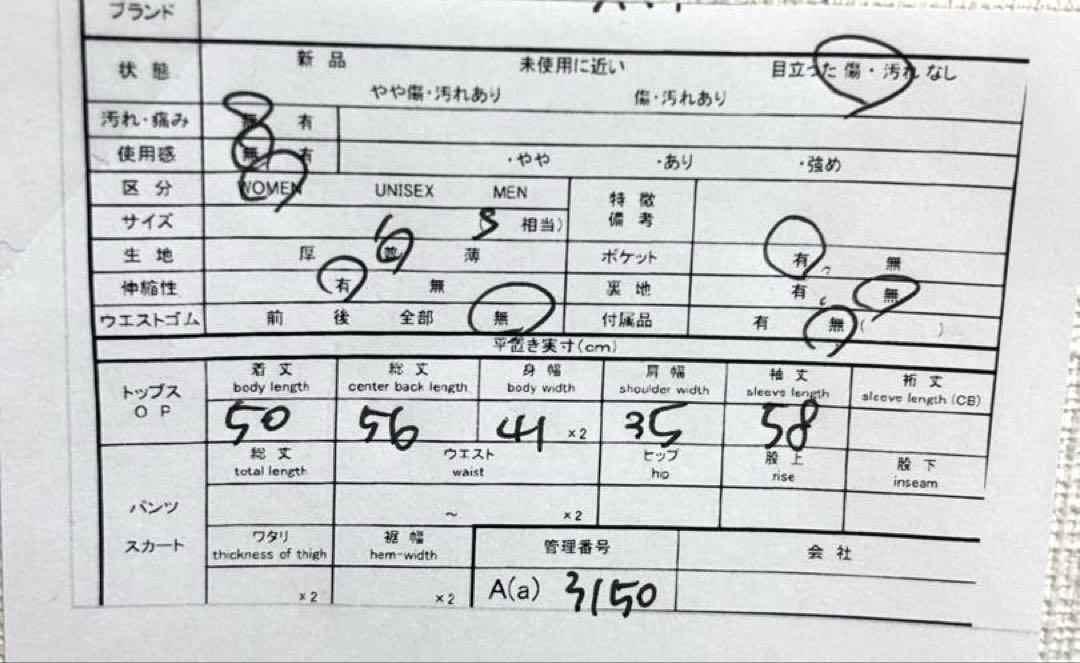 ブランド
状態 新品 未使用に近い 目立った傷・汚れなし
やや傷・汚れあり 傷・汚れあり
汚れ・痛み 無 有
使用感 無 有 ・やや ・あり ・強め
区分 WOMEN UNISEX MEN 特徴
備考
サイズ S 相当)
生地 厚 普 薄 ポケット 有 無
伸縮性 有 無 裏地 有 無
ウエストゴム 前 後 全部 無 付属品 有 無 ( )
平置き実寸(cm)
トップス
OP
着丈 総丈 身幅 肩幅 袖丈 裄丈
body length center back length body width shoulder width sleeve length sleeve length (CB)
50 56 41 ×2 35 58
パンツ
スカート
総丈 ウエスト ヒップ 股上 股下
total length waist hip rise inseam
～ ×2
ワタリ 裾幅 管理番号 会社
thickness of thigh hem-width
×2 ×2 A(a) 3150